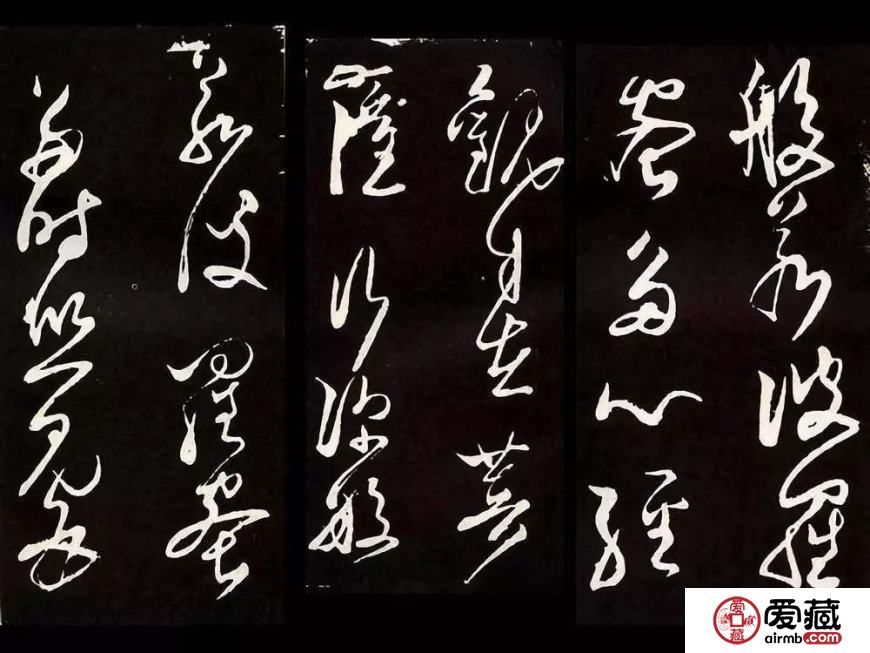 般若波羅
蜜多心經
觀自在菩
薩行深般
若波羅蜜
多時照見五
爱藏
爱藏
airmb.com